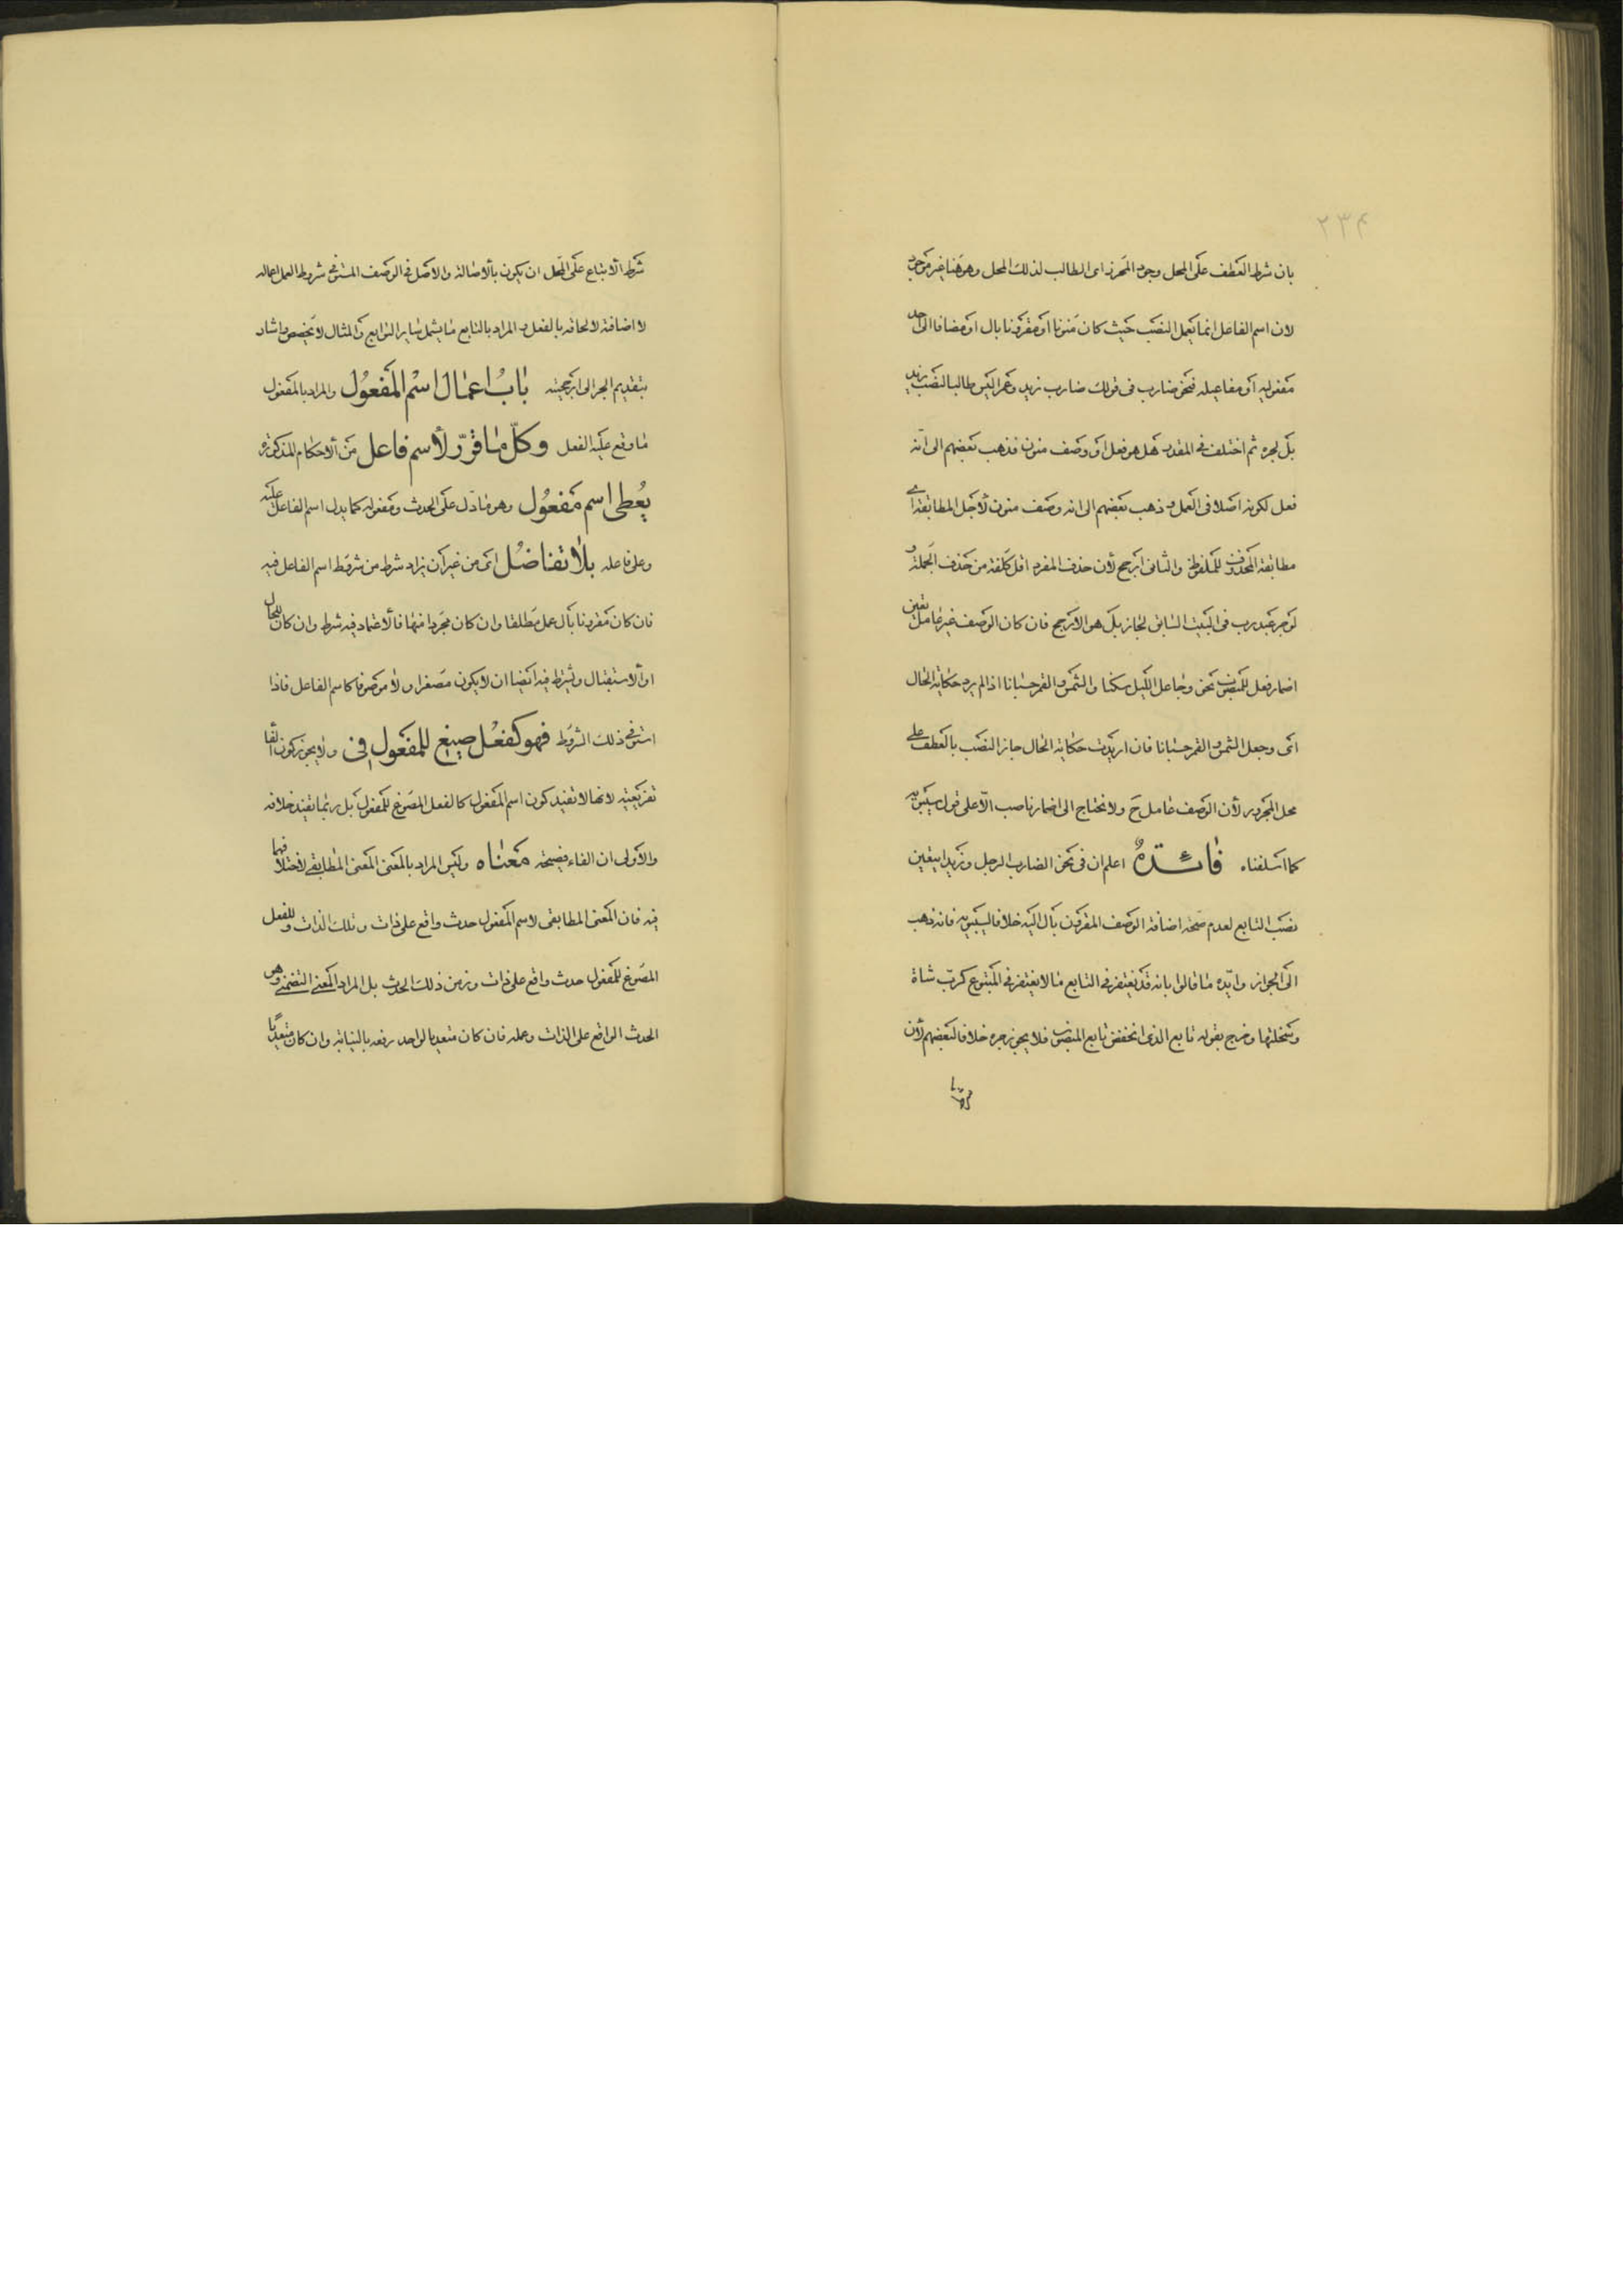 ۲۳۴
بان شرط العطف على المحل وجود المحرز اى الطالب لذلك المحل وهو هنا غير موجود
لان اسم الفاعل انما يعمل النصب حيث كان منونا او مقرونا بال او مضافا الى احد
مفعوليه او مفاعيله فنحو ضارب فى قولك ضارب زيد وعمرا ليس طالبا لنصب زيد
بل لجره ثم اختلف فى المقدر هل هو فعل او وصف منون فذهب بعضهم الى انه
فعل لكونه اصلا فى العمل وذهب بعضهم الى انه وصف منون لأجل المطابقة اى
مطابقة المحذوف للملفوظ والثانى ارجح لأن حذف المفرد اقل كلفة من حذف الجملة و
لو جر عبد رب فى البيت السابق لجاز بل هو الارجح فان كان الوصف غير عامل تعين
اضمار فعل للمنصوب نحو وجاعل الليل سكنا والشمس والقمر حسبانا اذا لم يرد حكاية الحال
اى وجعل الشمس والقمر حسبانا فان اريدت حكاية الحال جاز النصب بالعطف على
محل المجرور لأن الوصف عامل ح ولا نحتاج الى اضمار ناصب الّا على قول سيبويه
كما اسلفناه فائدةٌ اعلم ان فى نحو الضارب الرجل وزيدا يتعين
نصب التابع لعدم صحة اضافة الوصف المقرون بأل اليه خلافا لسيبويه فانه ذهب
الى الجواز وايّده ما قالوا بانه قد يغتفر فى التابع ما لا يغتفر فى المتبوع كربّ شاة
وسخلتها وخرج بقوله تابع الذى انخفض تابع المنصوب فلا يجوز جره خلافا لبعضهم لأن
شرط الأتباع على المحل ان يكون بالأصالة والاصل فى الوصف المستوفى شروط العمل اعماله
لا اضافته لالحاقه بالفعل والمراد بالتابع ما يشمل ساير التوابع والمثال لا يخصص واشار
بتقديم الجر الى ارجحيته بابُ اعمال اسْم المَفعُول والمراد بالمفعول
ما وقع عليه الفعل وكلّ ما قرّر لأسم فاعل من الأحكام المذكورة
يُعطى اسم مَفعُول وهو ما دل على الحدث ومفعوله كما يدل اسم الفاعل عليه
وعلى فاعله بلا تفاضُل اى من غير ان يزاد شرط من شروط اسم الفاعل فيه
فان كان مقرونا بأل عمل مطلقا وان كان مجردا منها فالأعتماد فيه شرط وان كان للحال
او الاستقبال ويشترط فيه ايضا ان لا يكون مصغرا ولا موصوفا كاسم الفاعل فاذا
استوفى ذلك الشروط فهو كفعْل صيغ للمفعول فى ولا يجوز كون الفا
تفريعية لانها لا تفيد كون اسم المفعول كالفعل المصوغ للمفعول بل ربما تفيد خلافه
والأولى ان الفاء فصيحة مَعناه وليس المراد بالمعنى المعنى المطابقى لاختلافهما
فيه فان المعنى المطابقى لاسم المفعول حدث واقع على ذات وتلك الذات وللفعل
المصوغ للمفعول حدث واقع على ذات وزمن ذلك الحدث بل المراد المعنى التضمنى وهى
الحدث الواقع على الذات وعمله فان كان متعديا لواحد رفعه بالنيابة وان كان متعديًا